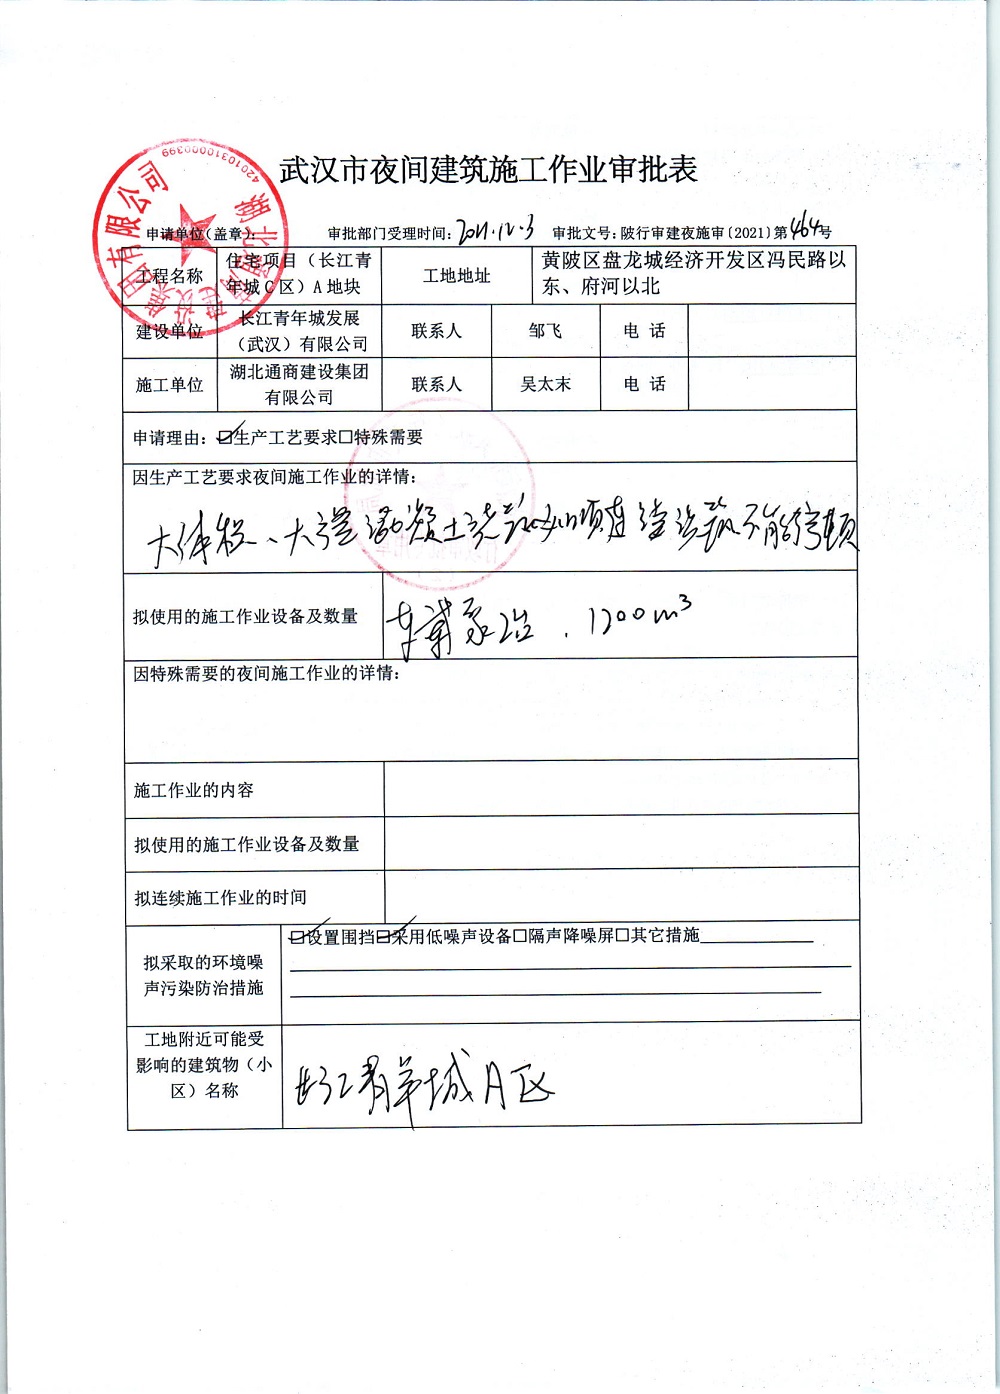 武汉市夜间建筑施工作业审批表
申请单位(盖章): 审批部门受理时间: 2021.12.3 审批文号: 陂行审建夜施审(2021)第464号
工程名称 住宅项目（长江青年城C区）A地块 工地地址 黄陂区盘龙城经济开发区冯民路以东、府河以北
建设单位 长江青年城发展（武汉）有限公司 联系人 邹飞 电 话
施工单位 湖北通商建设集团有限公司 联系人 吴太末 电 话
申请理由: ☑生产工艺要求□特殊需要
因生产工艺要求夜间施工作业的详情:
大体积、大方量混凝土浇筑必须连续浇筑不能停顿
拟使用的施工作业设备及数量 1200m³
因特殊需要的夜间施工作业的详情:
施工作业的内容
拟使用的施工作业设备及数量
拟连续施工作业的时间
拟采取的环境噪声污染防治措施 ☑设置围挡☑采用低噪声设备□隔声降噪屏□其它措施
工地附近可能受影响的建筑物（小区）名称 长江青年城A区
湖北通商建设集团有限公司
4201031000399